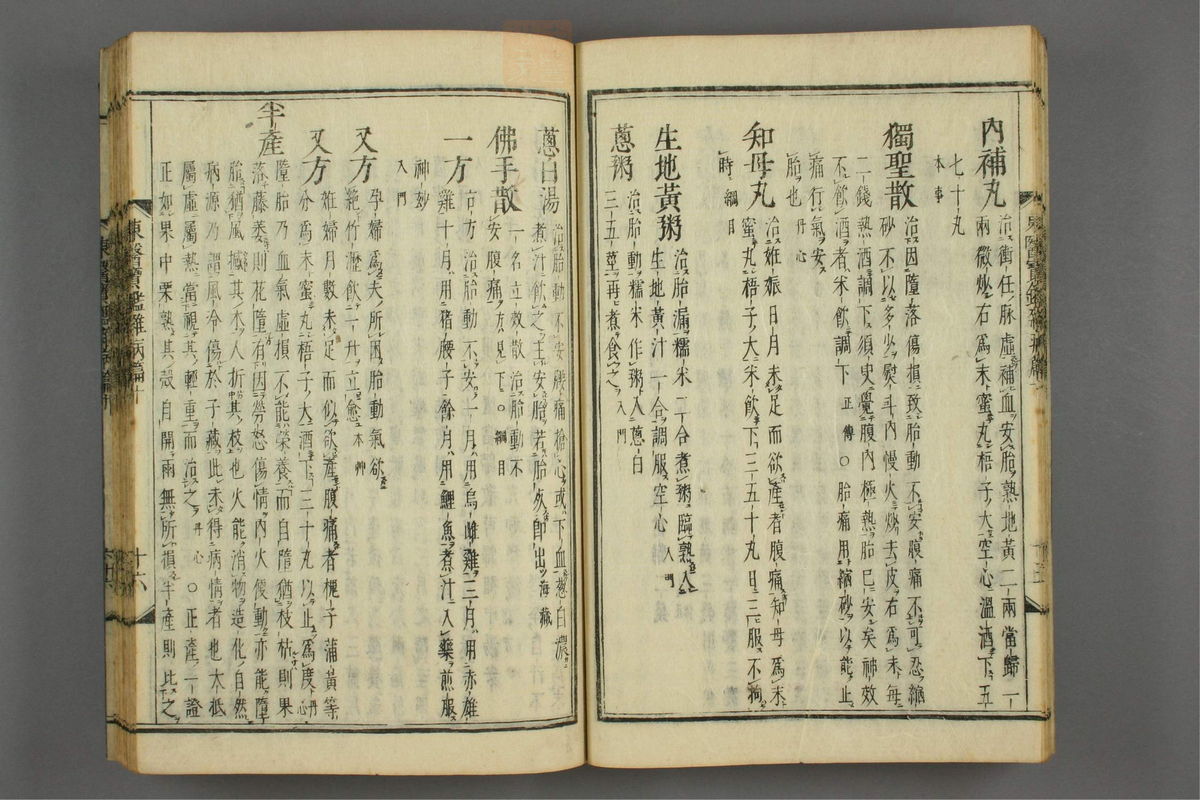 內補丸 治衝任脉虛補血安胎熟地黃二兩當歸一
兩微炒右爲末蜜丸梧子大空心溫酒下五
七十丸
本事
獨聖散 治因墮落傷損致胎動不安腹痛不可忍縮
砂不以多少熨斗內慢火炒去皮右爲末每
二錢熱酒調下須臾覺腹內極熱胎已安矣神效
不飮酒者米飮調下 正傳 ○胎痛用縮砂以能止
痛行氣安
胎也 丹心
知母丸 治姙娠日月未足而欲產者腹痛知母爲末
蜜丸梧子大米飮下三五十丸日三服不拘
時 綱目
生地黃粥 治胎漏糯米二合煮粥臨熟入
生地黃汁一合調服空心 入門
蔥粥 治胎動糯米作粥入蔥白
三五莖再煮食之 入門
蔥白湯 治胎動不安腰痛搶心或下血蔥白濃
煮汁飮之生安胎若胎死卽出 海藏
佛手散 一名立效散治胎動不
安腹痛方見下 ○綱目
一方 治胎動不安一月用烏雌雞三月用赤雄
雞十月用猪腰子餘月用鯉魚煮汁入藥煎服
神妙
入門
又方 孕婦爲夫所困胎動氣欲
絶竹瀝飮一升立愈 本艸
又方 姙婦月數未足而似欲產腹痛者梔子蒲黃等
分爲末蜜丸梧子大酒下三十丸以止爲度 丹心
半產 墮胎乃血氣虛損不能榮養而自墮猶枝枯則果
落藤萎則花墮有因勞怒傷情內火便動亦能墮
胎猶風撼其木人折其枝也火能消物造化自然
病源乃謂風冷傷於子藏此未得病情者也大抵
屬虛屬熱當視其輕重而治之 丹心 ○正產一證
正如果中栗熟其殼自開兩無所損半產則比之
東醫寶鑑雜病篇十
十六